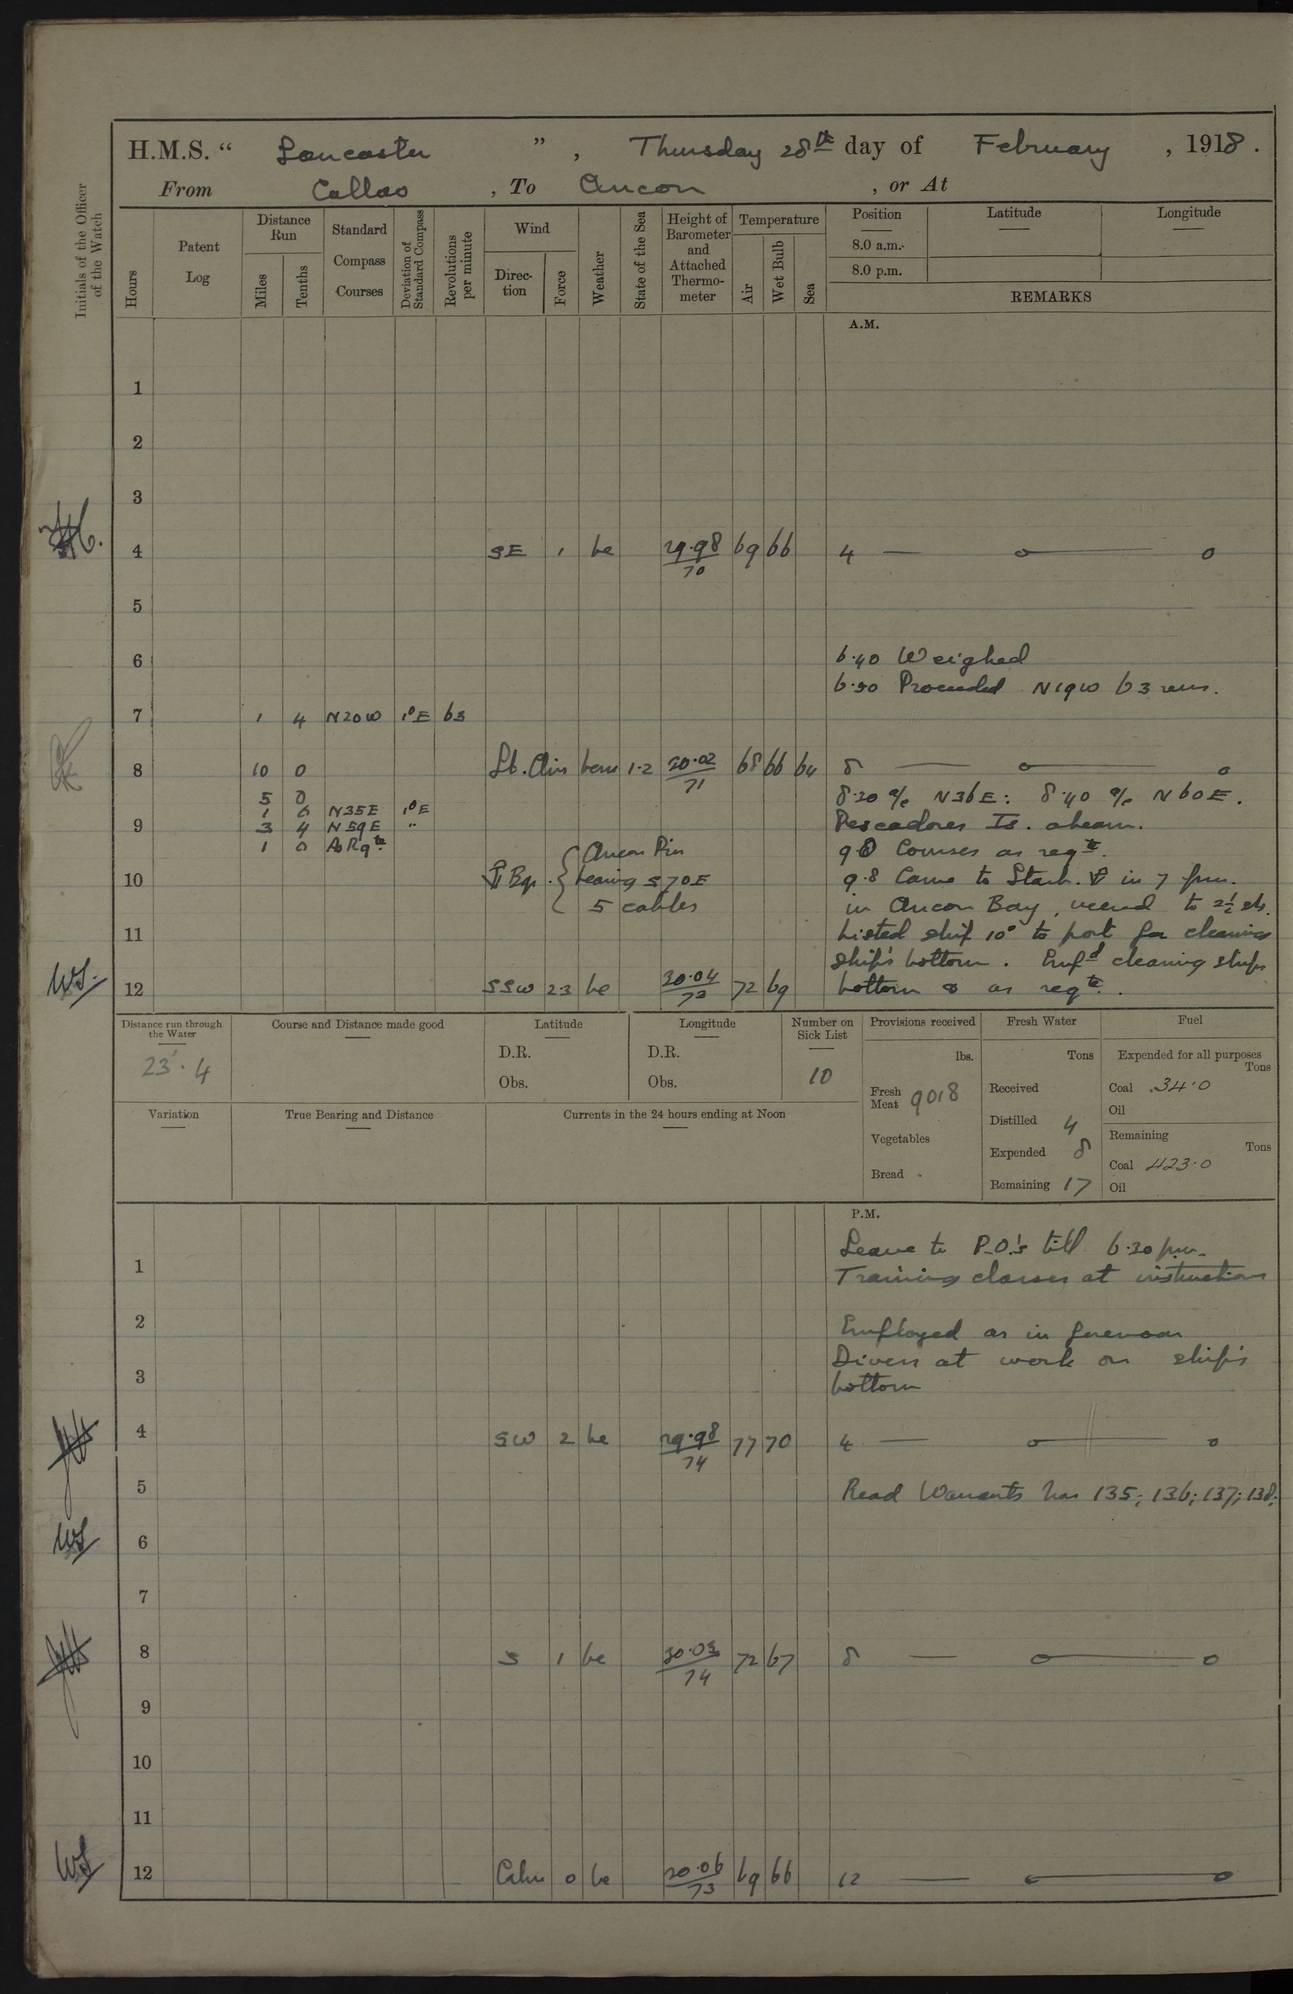 H.M.S. “ Lancaster ”, Thursday 28th day of February, 1918.
From Callao, To Ancon, or At
Initials of the Officer of the Watch
Hours
Patent Log
Distance Run
Miles
Tenths
Standard Compass Courses
Deviation of Standard Compass
Revolutions per minute
Wind
Direc-tion
Force
Weather
State of the Sea
Height of Barometer and Attached Thermo-meter
Temperature
Air
Wet Bulb
Sea
Position
Latitude
Longitude
8.0 a.m.
8.0 p.m.
REMARKS
A.M.
1
2
3
4 SE 1 bc 29.98/70 69 66 4 — o — o
5
6 6.40 Weighed
6.50 Proceeded N19W 63 revs.
7 1 4 N20W 1°E 63
8 10 0 Lt. Airs bcm 1.2 30.02/71 68 66 64 8 — o — o
5 0 8.20 a/c N36E: 8.40 a/c N60E.
1 6 N35E 1°E
9 3 4 N59E " Pescadores Is. abeam.
1 0 As Rqte. 9.0 Courses as reqte.
Ancon Pier
10 Bgs. bearing S70E 9.8 Came to Starb. in 7 fms.
5 cables in Ancon Bay, veered to 2½ shs.
11 Listed ship 10° to port for cleaning
ship's bottom. Empd cleaning ships
12 SSW 2.3 bc 30.04/73 72 69 bottom & as reqte.
WS.
Distance run through the Water
23'.4
Course and Distance made good
Latitude
D.R.
Obs.
Longitude
D.R.
Obs.
Number on Sick List
10
Provisions received
lbs.
Fresh Meat 9018
Vegetables
Bread
Fresh Water
Tons
Received
Distilled 4
Expended 8
Remaining 17
Fuel
Expended for all purposes
Tons
Coal 34.0
Oil
Remaining
Tons
Coal 423.0
Oil
Variation
True Bearing and Distance
Currents in the 24 hours ending at Noon
P.M.
Leave to P.O.'s till 6.30 pm.
1 Training classes at instruction
2 Employed as in forenoon
Divers at work on ship's
3 bottom
4 SW 2 bc 29.98/74 77 70 4 — o — o
5 Read Warrants Nos 135; 136; 137; 138;
6
WS
7
8 S 1 bc 30.03/74 72 67 8 — o — o
9
10
11
12 Calm 0 bc 30.06/73 69 66 12 — o — o
WS